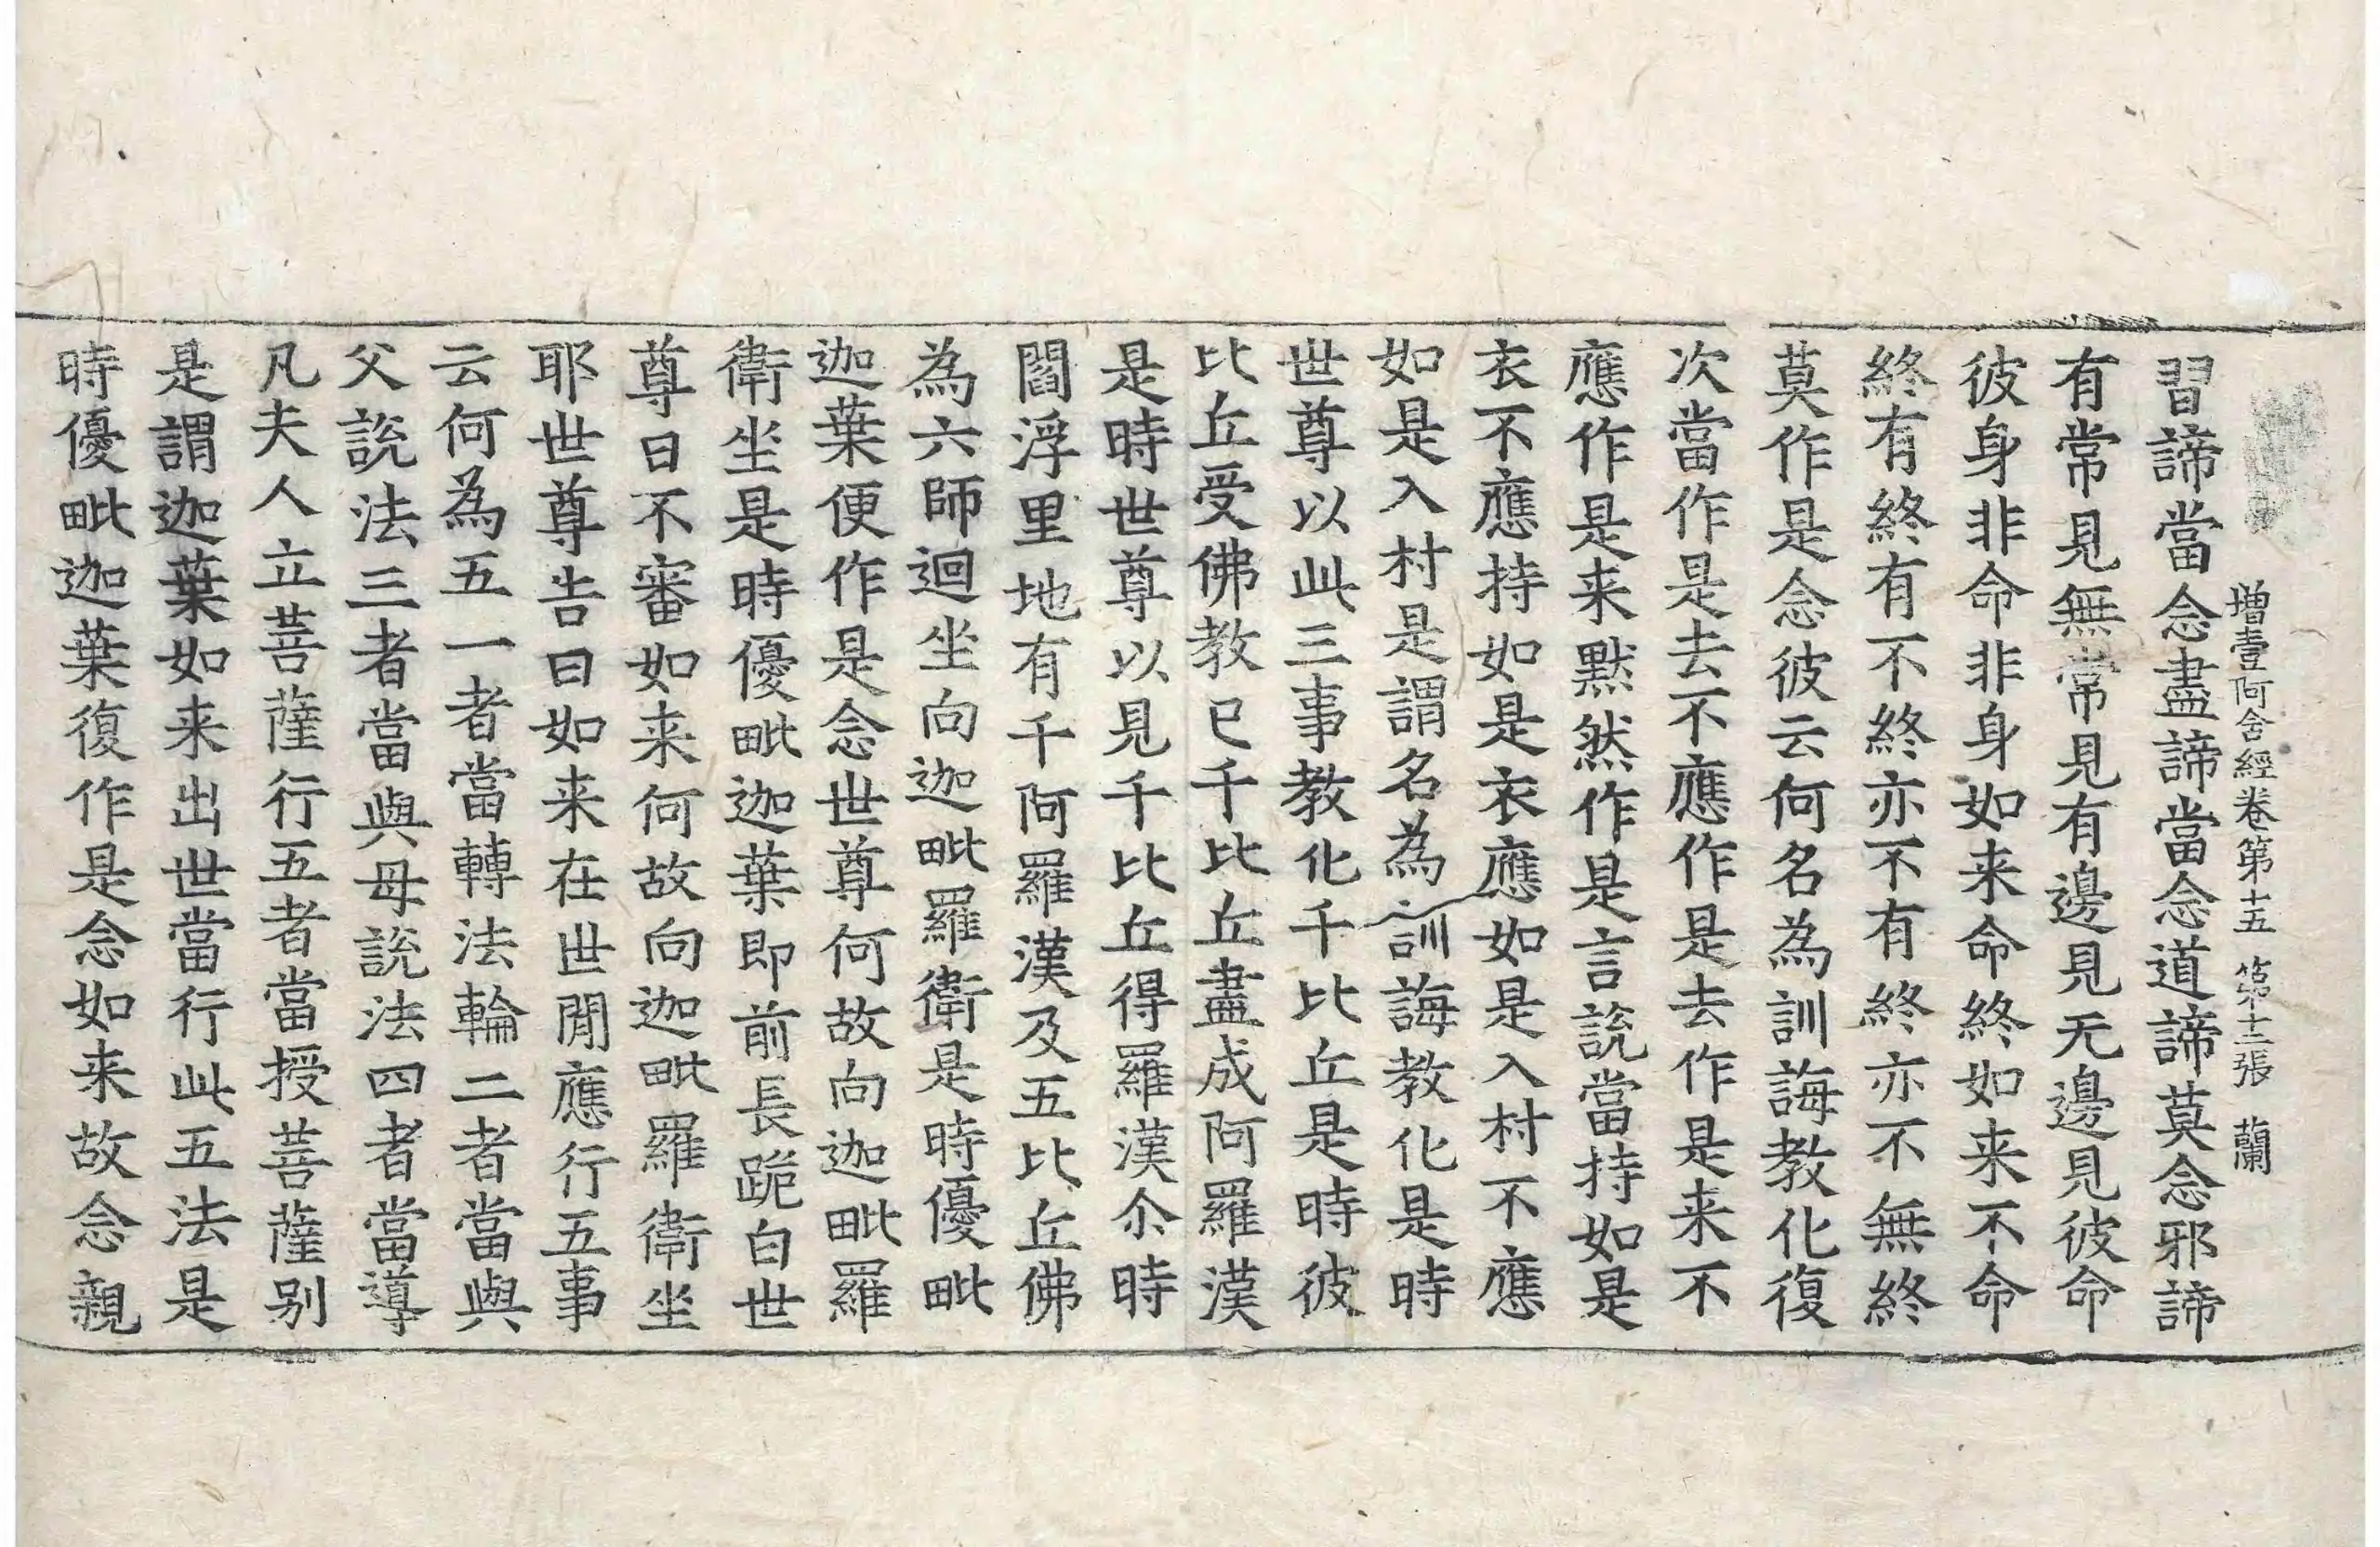 增壹阿含經卷第十五 第十三張 蘭
習諦當念盡諦當念道諦莫念邪諦
有常見無常見有邊見无邊見彼命
彼身非命非身如来命終如来不命
終有終有不終亦不有終亦不無終
莫作是念彼云何名為訓誨教化復
次當作是去不應作是去作是来不
應作是来默然作是言說當持如是
衣不應持如是衣應如是入村不應
如是入村是謂名為訓誨教化是時
世尊以此三事教化千比丘是時彼
比丘受佛教已千比丘盡成阿羅漢
是時世尊以見千比丘得羅漢尒時
閻浮里地有千阿羅漢及五比丘佛
為六師迴坐向迦毗羅衛是時優毗
迦葉便作是念世尊何故向迦毗羅
衛坐是時優毗迦葉即前長跪白世
尊曰不審如来何故向迦毗羅衛坐
耶世尊告曰如来在世間應行五事
云何為五一者當轉法輪二者當與
父說法三者當與母說法四者當導
凡夫人立菩薩行五者當授菩薩别
是謂迦葉如来出世當行此五法是
時優毗迦葉復作是念如来故念親